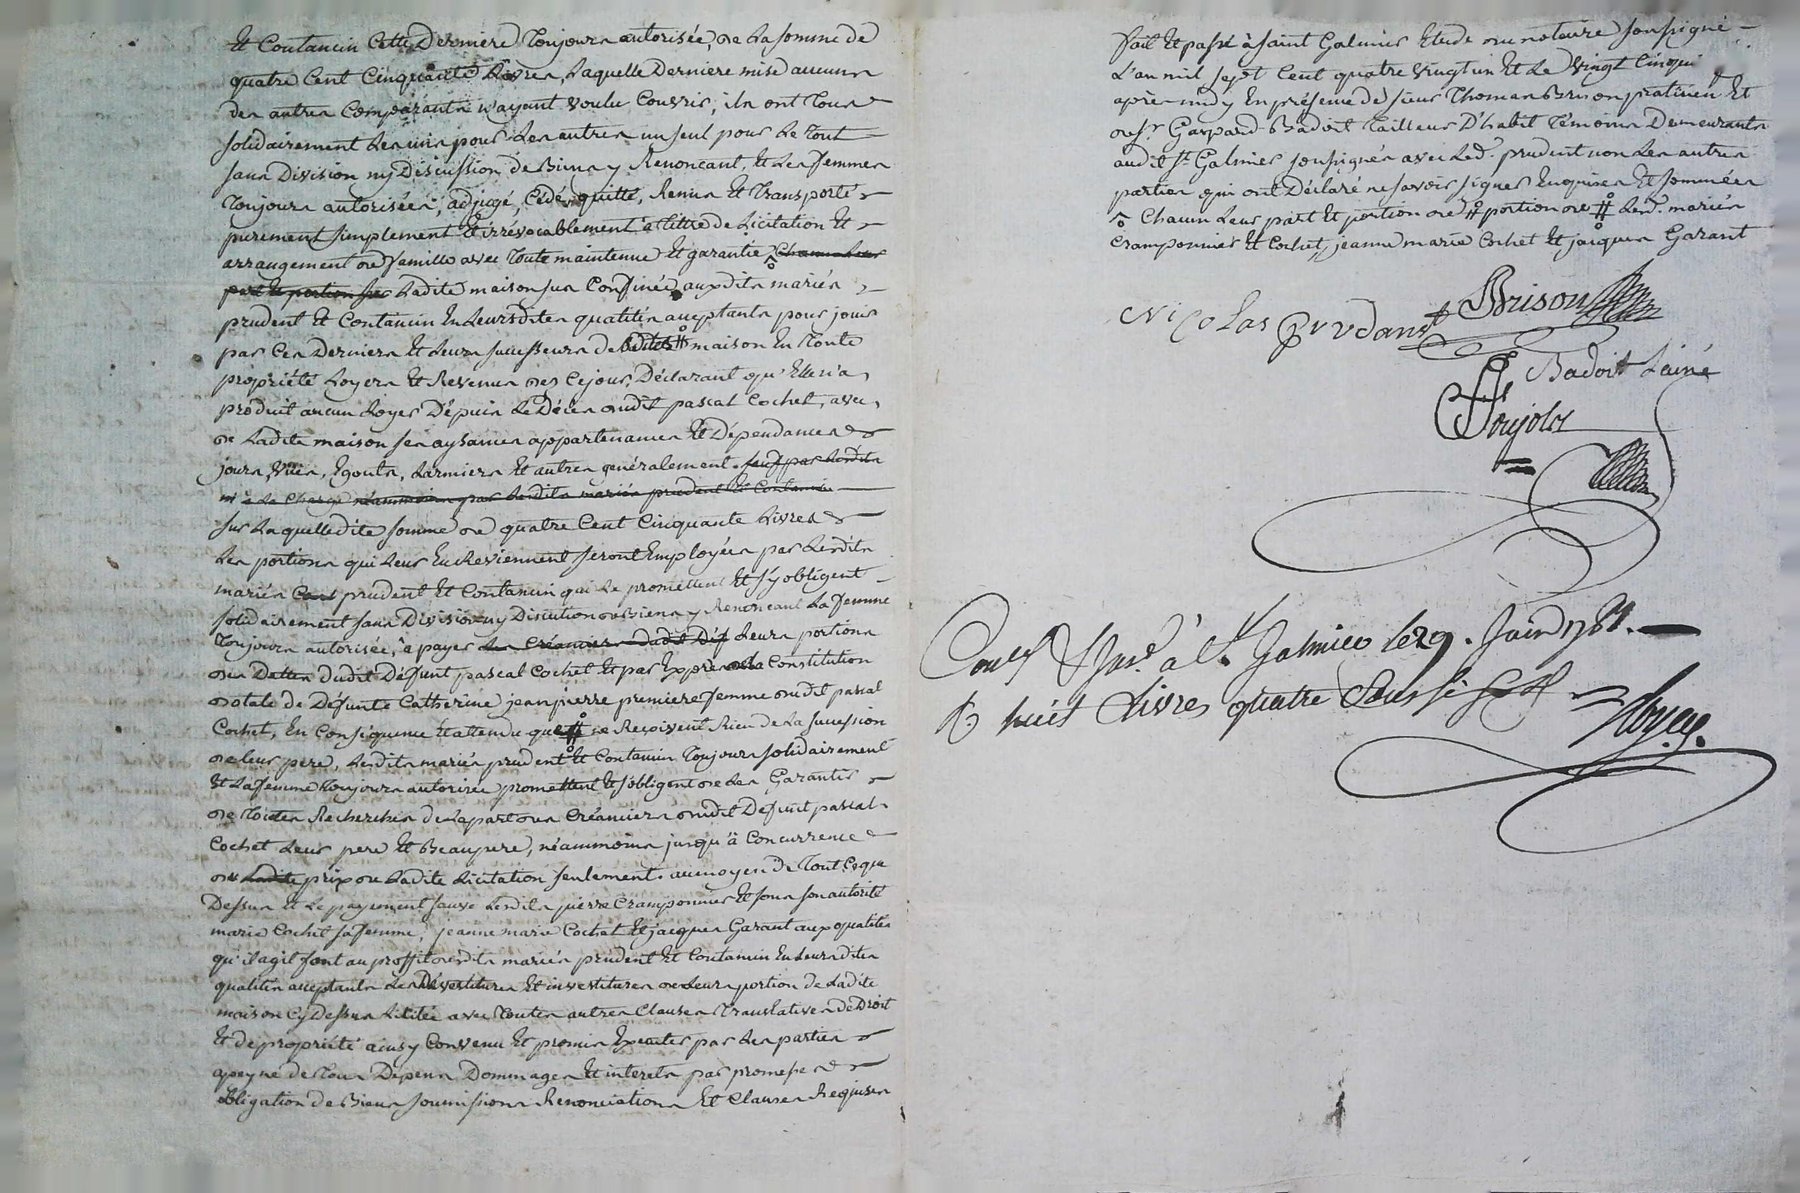 Et Contancin Cette Derniere Toujours autorisée, de La somme de
quatre Cent Cinquante Livres, Laquelle Derniere mise aucuns
des autres Comparants n'ayant voulu Couvrir, ils ont Tous
solidairement Les uns pour Les autres un seul pour Le Tout
sans Division ny Discussion de Biens y Renoncant, Et Les femmes
Toujours autorisées, adjugé, Cédé, quitté, Remis Et Transporté
purement simplement Et irrévocablement à titre de Licitation Et
arrangement de famille avec Toute maintenue Et garantie Chacun Leur
part Et portion sur Ladite maison sus Confinée, auxdits mariés
prudent Et Contancin En Leursdites qualités acceptants pour jouir
par Ces Derniers Et Leurs successeurs de maison En Toute
propriété Loyers Et Revenus des Cejour, Déclarant qu'Elle n'a
produit aucun Loyer Dépuis Le Décès dudit pascal Cochet, avec
de Ladite maison ses aysances appartenances Et Dépendances
jours, Vües, Egouts, Larmiers Et autres généralement. sauf par Lesdits
à La Charge néammoins par Lesdits mariés prudent Et Contancin
sur Laquelledite somme de quatre Cent Cinquante Livres
Les portions qui Leur En Reviennent seront Employées par Lesdits
mariés prudent Et Contancin qui Le promettent Et s'y obligent
solidairement sans Division ny Discution de Biens y Renoncant La femme
Toujours autorisée, à payer Les Créanciers dudit Déf Leurs portions
des Dettes dudit Défunt pascal Cochet Et par Exprès de la Constitution
dotale de Défunte Catherine jeanpierre premiere femme dudit pascal
Cochet, En Conséquence Et attendu que # ne Reçoivent Rien de La succession
de Leur pere, Lesdits mariés prudent Et Contancin Toujours solidairement
Et La femme Toujours autorisée promettent Et s'obligent de Les Garantir
de Toutes Recherches de La part des Créanciers dudit Defunt pascal
Cochet Leur pere Et Beaupere, néammoins jusqu'à Concurrence
du Ladite prix de Ladite Licitation seulement. au moyen de Tout Ceque
Dessus Et Le payement sauve Lesdits pierre Cramponnier Et sous son autorité
marie Cochet sa femme, jeanne marie Cochet Et jacques Garant aux qualités
qu'il agit font au proffit desdits mariés prudent Et Contancin En Leursdites
qualités acceptants Les Dévestitures Et investitures de Leurs portion de Ladite
maison Cy Dessus Licitée avec Toutes autres Clauses Translatives de Droit
Et de propriété ainsy Convenu Et promis Executer par Les parties
apeyne de Tous Dépens Dommages Et interets par promesse
obligation de Biens soumissions Renonciations Et Clauses Requises
fait Et passé à Saint Galmier Etude du notaire soussigné
L'an mil sept Cent quatre Vingt un Et Le Vingt Cinq
après midy En présence de sieur Thomas Brison praticien Et
de sr Gaspard Badoit Tailleur D'habit Témoins Demeurants
audit St. Galmier soussignés avec Led. prudent non Les autres
parties qui ont Déclaré ne savoir signer Enquises Et sommées
Chacun Leur part Et portion de # portion de # Lesd. mariés
Cramponnier Et Cochet, jeanne marie Cochet Et jacques Garant
Nicolas Prudant Brison
Badoit L'ainé
Poujolat
à St. Galmier le 29. Juin 1781.
R huit Livres quatre Sous six